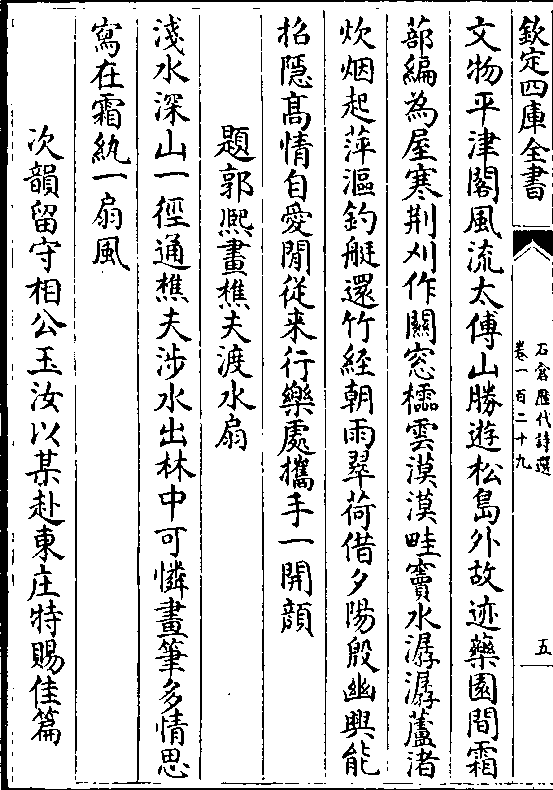 欽定四庫全書
石倉歷代詩選
卷一百二十九
五
文物平津閣風流太傅山勝遊松島外故迹藥園間霜
蔀編為屋寒荆刈作關窓櫺雲漠漠畦竇水潺潺蘆渚
炊烟起萍漚釣艇還竹經朝雨翠荷借夕陽殷幽興能
招隱髙情自愛閒從来行藥處攜手一開顔
題郭熈畫樵夫渡水扇
淺水深山一徑通樵夫涉水出林中可憐畫筆多情思
寫在霜紈一扇風
次韻留守相公玉汝以某赴東庄特賜佳篇